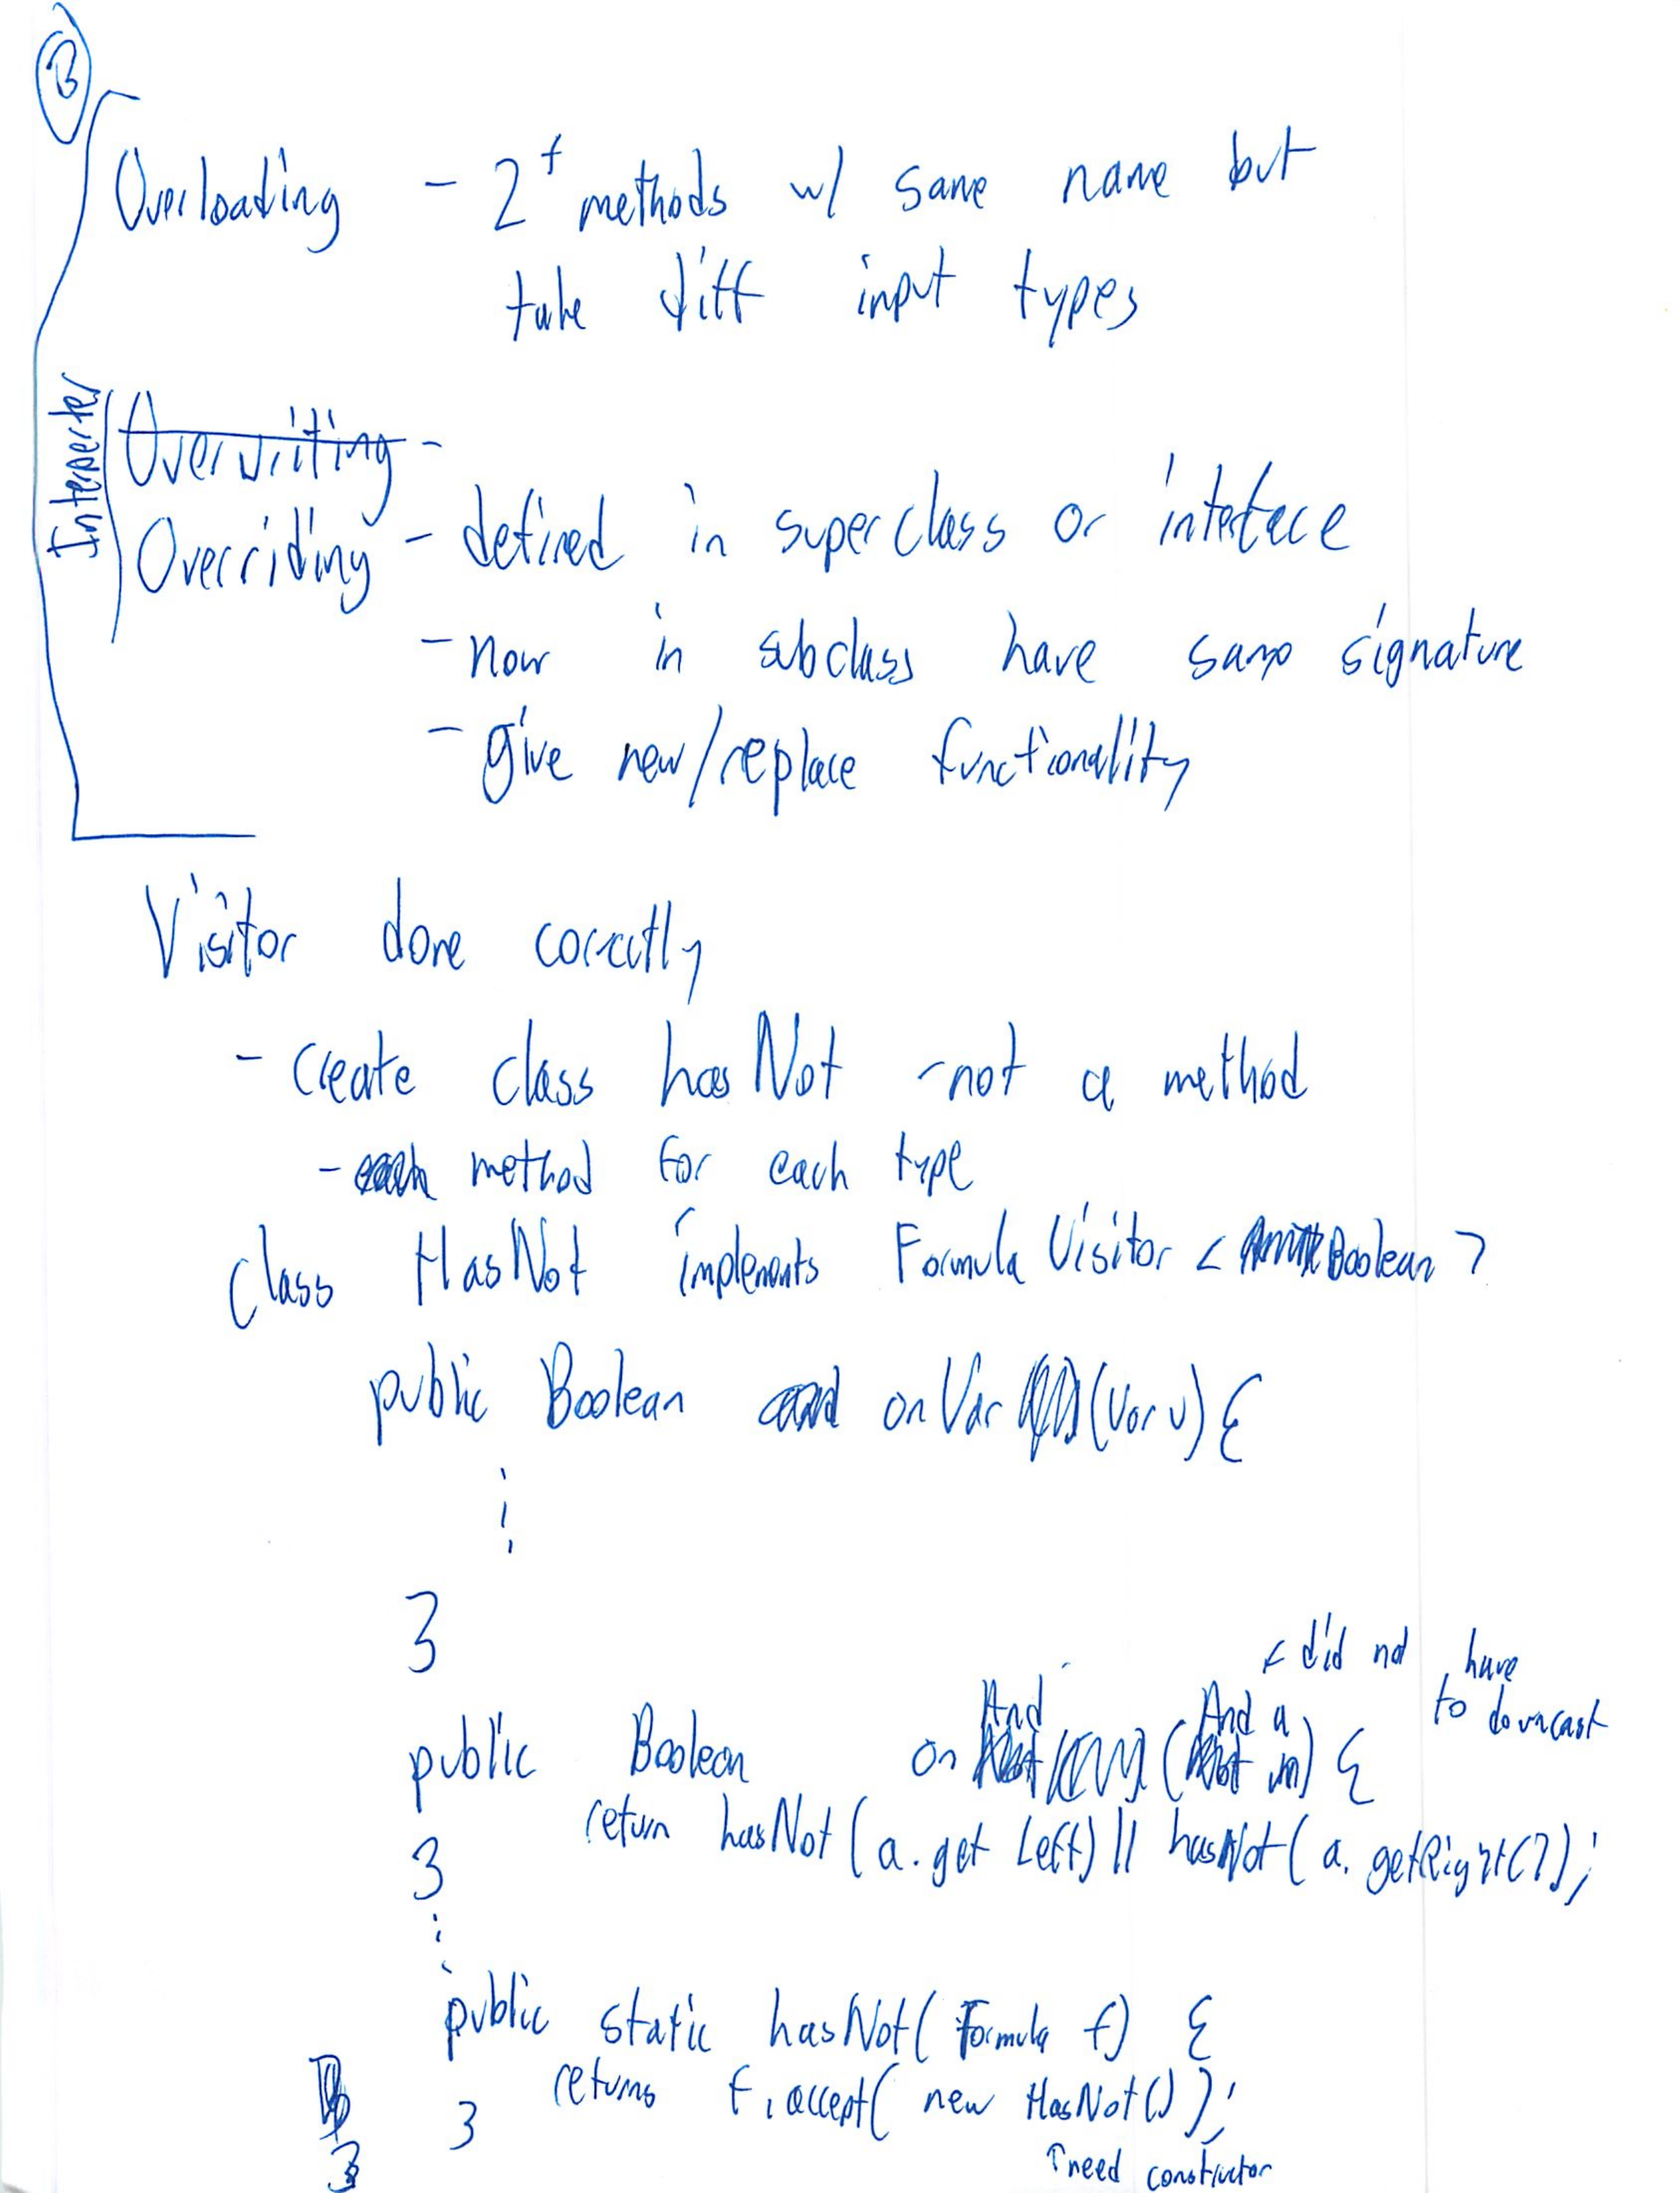 B
Overloading - 2+ methods w/ same name but
take diff input types
Interperter
Overwriting -
Overriding - defined in superclass or interface
- now in subclass have same signature
- give new/replace functionality
Visitor done correctly
- Create class hasNot - not a method
- method for each type
class HasNot implements Formula Visitor < Boolean >
public Boolean onVar (Var v) {
⋮
}
← did not have
to downcast
public Boolean on And (And a) {
return hasNot (a.get Left) || hasNot( a. getRight());
}
⋮
public static hasNot( Formula f) {
returns f.accept( new HasNot() );
}
↑need constructor
}